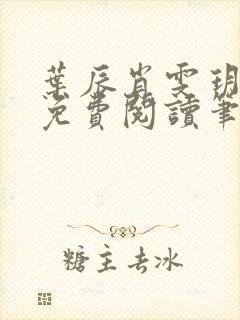 葉辰肖雯玥
免費閱讀筆
糖主去冰